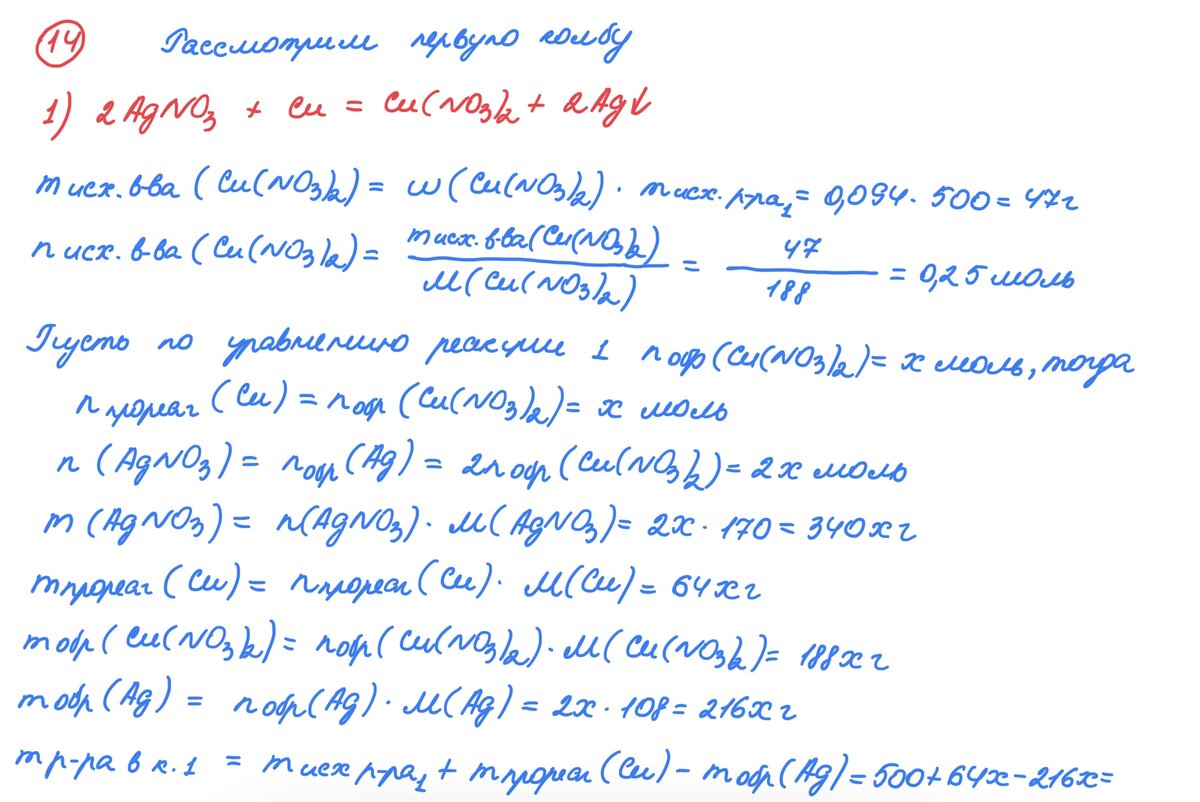 14 Рассмотрим первую колбу
1) 2AgNO₃ + Cu = Cu(NO₃)₂ + 2Ag↓
m исх. в-ва (Cu(NO₃)₂) = ω(Cu(NO₃)₂) · m исх. р-ра₁ = 0,094 · 500 = 47 г
n исх. в-ва (Cu(NO₃)₂) = m исх. в-ва (Cu(NO₃)₂) / M(Cu(NO₃)₂) = 47 / 188 = 0,25 моль
Пусть по уравнению реакции 1 n обр (Cu(NO₃)₂) = x моль, тогда
n прореаг (Cu) = n обр (Cu(NO₃)₂) = x моль
n (AgNO₃) = n обр (Ag) = 2n обр (Cu(NO₃)₂) = 2x моль
m (AgNO₃) = n(AgNO₃) · M(AgNO₃) = 2x · 170 = 340x г
m прореаг (Cu) = n прореаг (Cu) · M(Cu) = 64x г
m обр (Cu(NO₃)₂) = n обр (Cu(NO₃)₂) · M(Cu(NO₃)₂) = 188x г
m обр (Ag) = n обр (Ag) · M(Ag) = 2x · 108 = 216x г
m р-ра в к. 1 = m исх р-ра₁ + m прореаг (Cu) − m обр (Ag) = 500 + 64x − 216x =